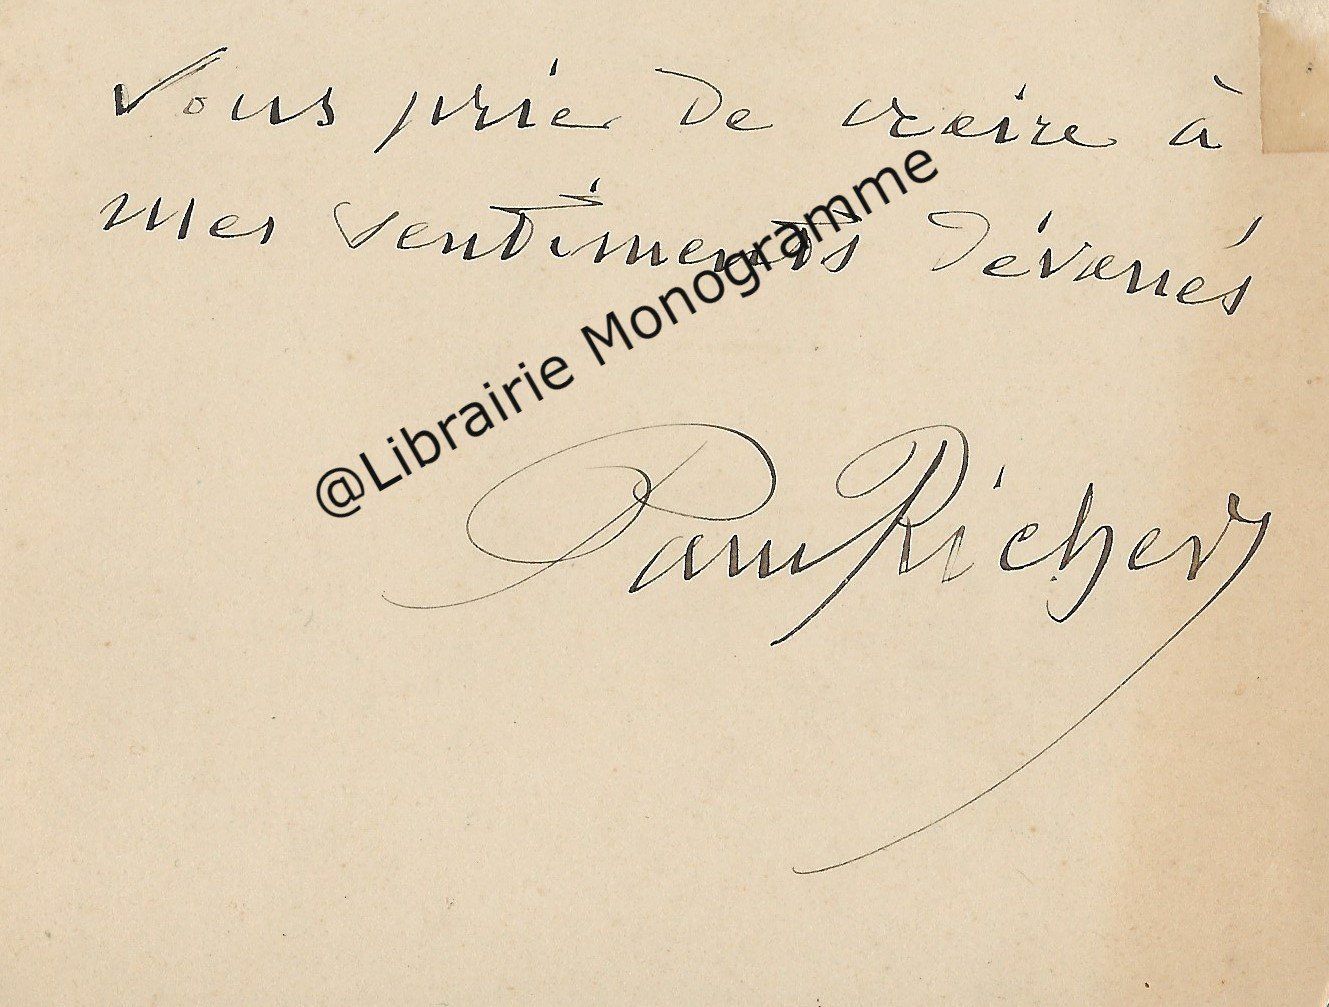 Vous prie de croire à
mes sentiments dévoués
@Librairie Monogramme
Paul Richer